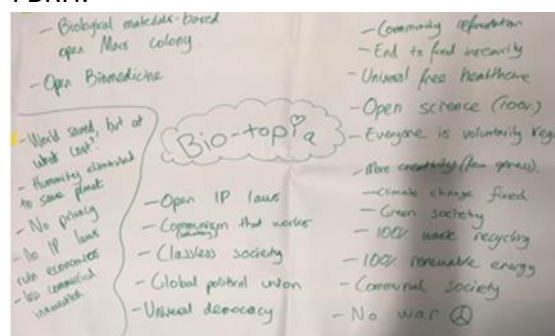 - Biological materials-based
open Mars colony
- Open Biomedicine
- World saved, but at
what cost?
- Humanity eliminated
to save planet
- No privacy
- No IP laws
ruin economies
- less commercial
innovation
Bio-topia
- Open IP laws
- Communism that works
- Classless society
- Global political union
- Universal democracy
- Community
- End to food insecurity
- Universal free healthcare
- Open science (100%)
- Everyone is voluntarily Veg.
- More creativity (from openness).
- Climate change fixed
- Green society
- 100% waste recycling
- 100% renewable energy
- Communal society
- No war